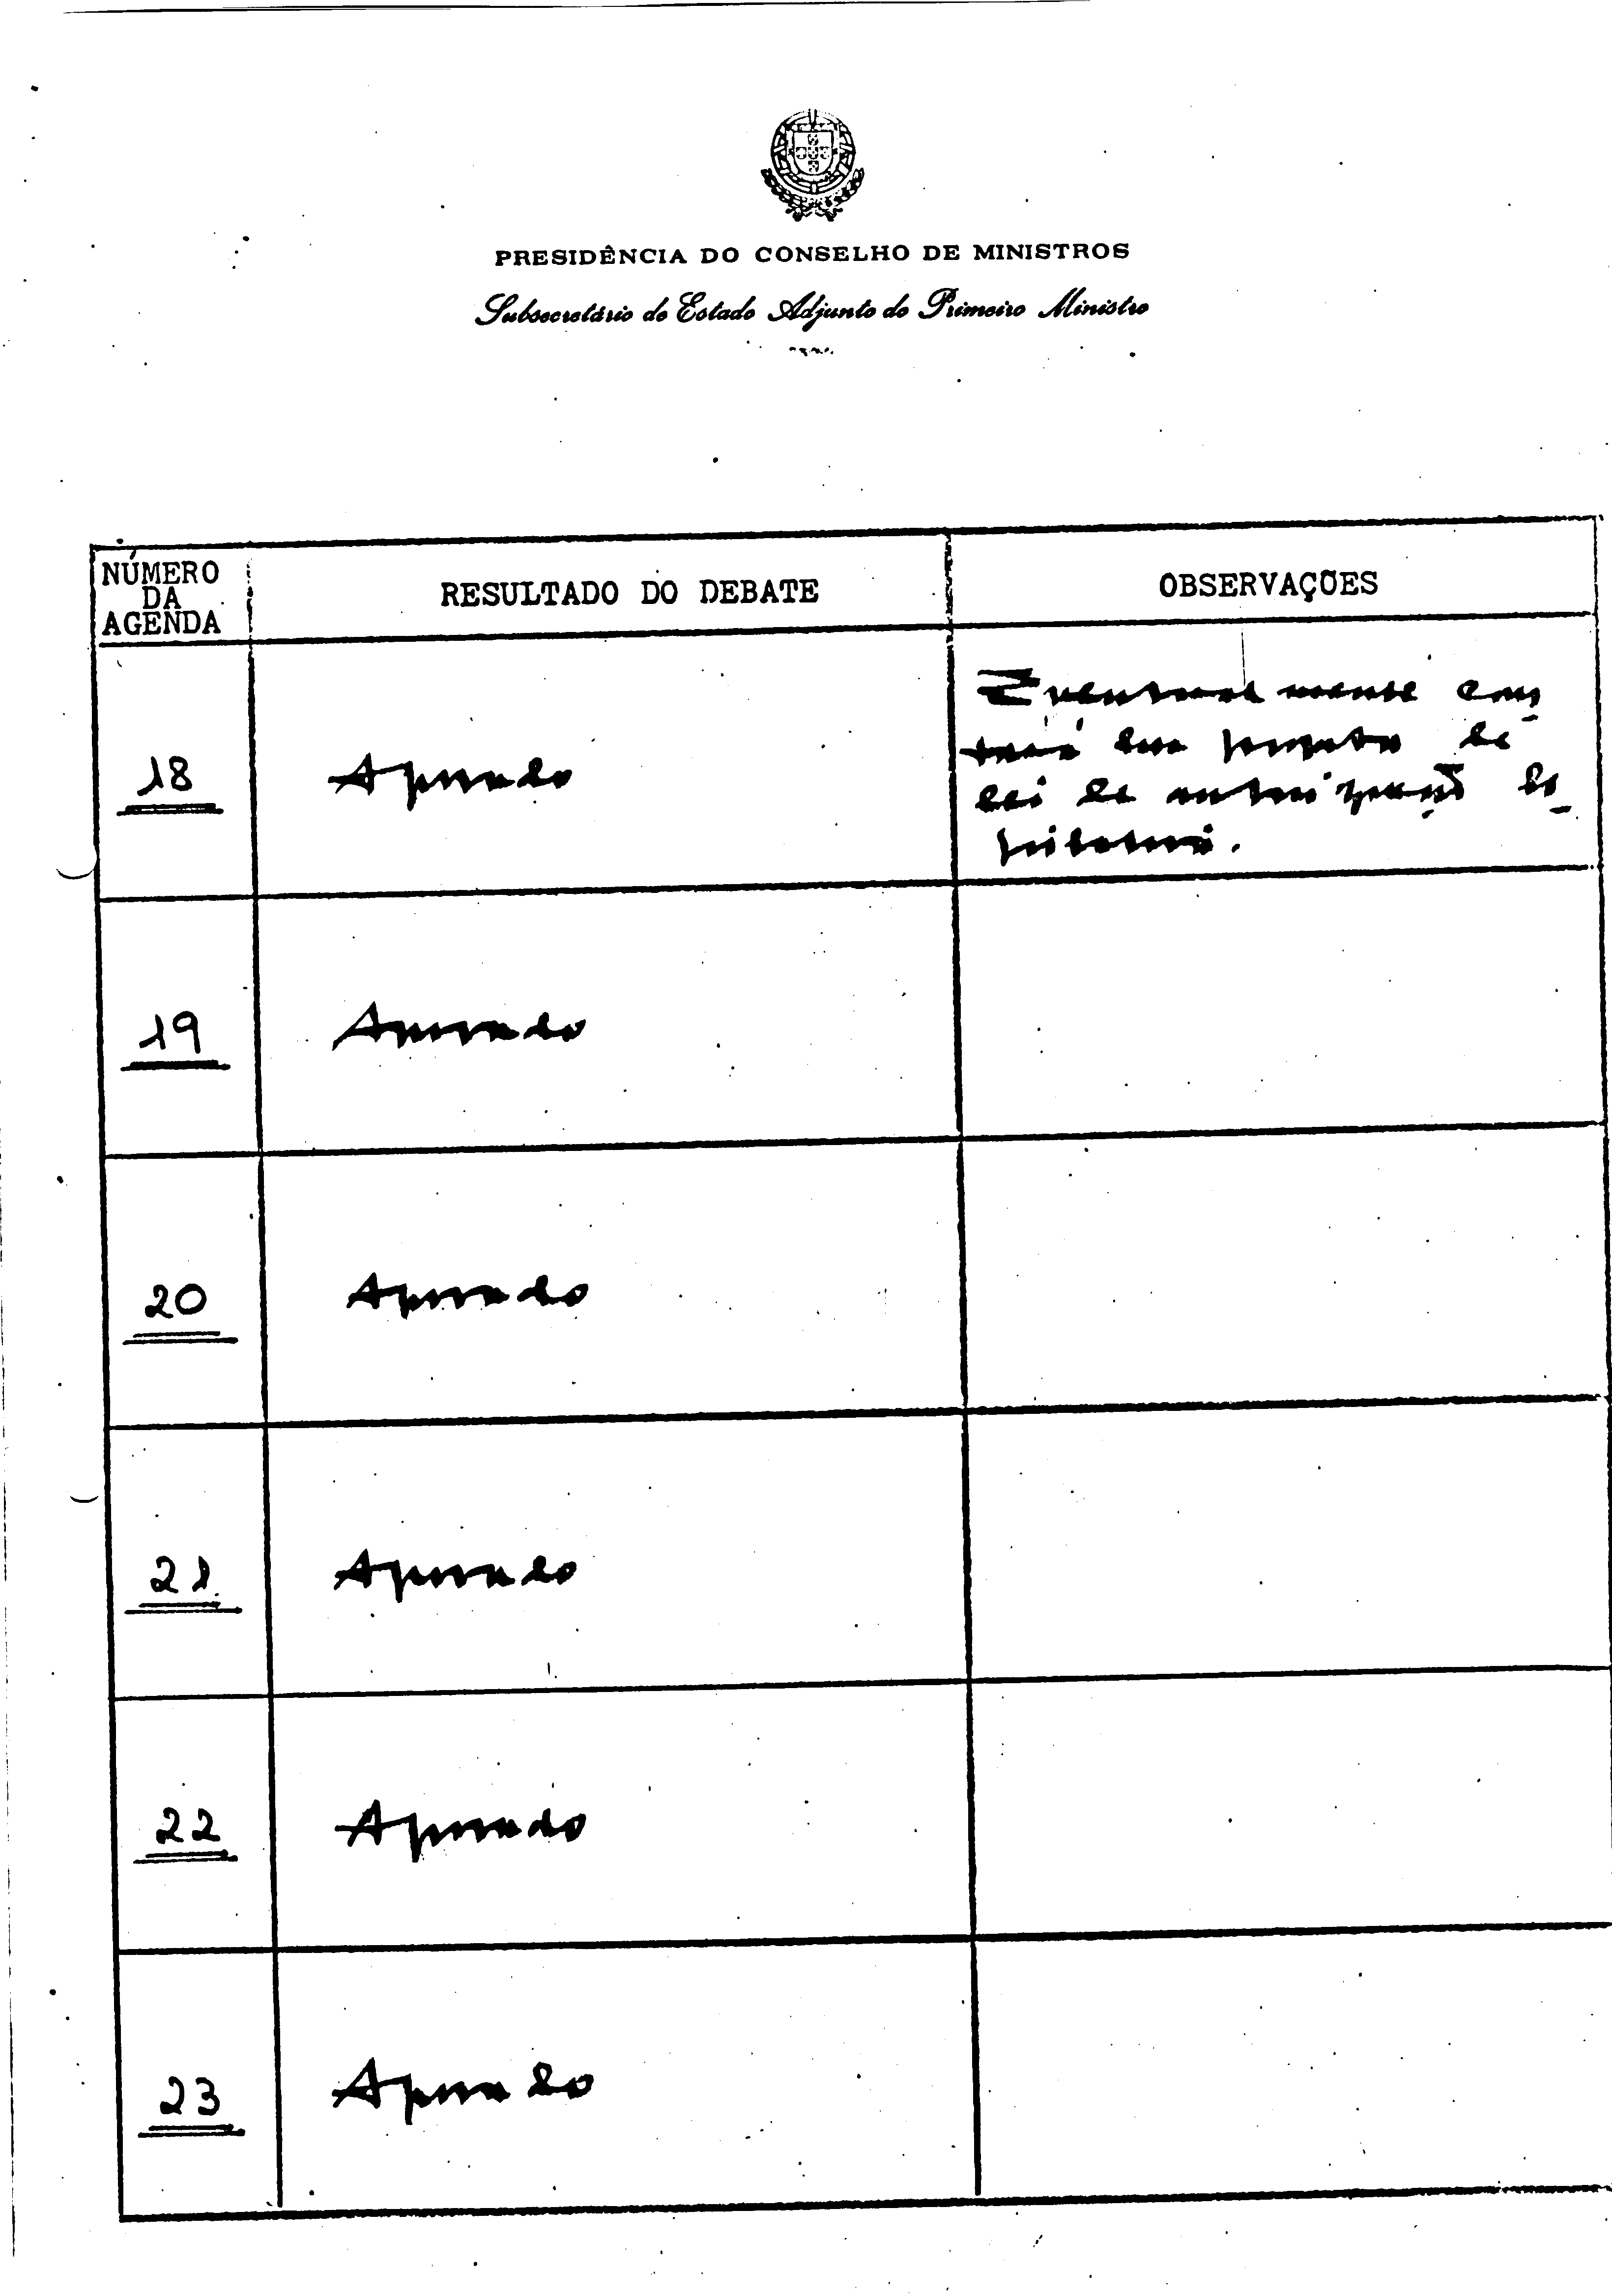 PRESIDÊNCIA DO CONSELHO DE MINISTROS
Subsecretário de Estado Adjunto do Primeiro Ministro
NÚMERO
DA
AGENDA
RESULTADO DO DEBATE
OBSERVAÇÕES
18
Aprovado
Eventualmente
lei de
19
Aprovado
20
Aprovado
21
Aprovado
22
Aprovado
23
Aprovado